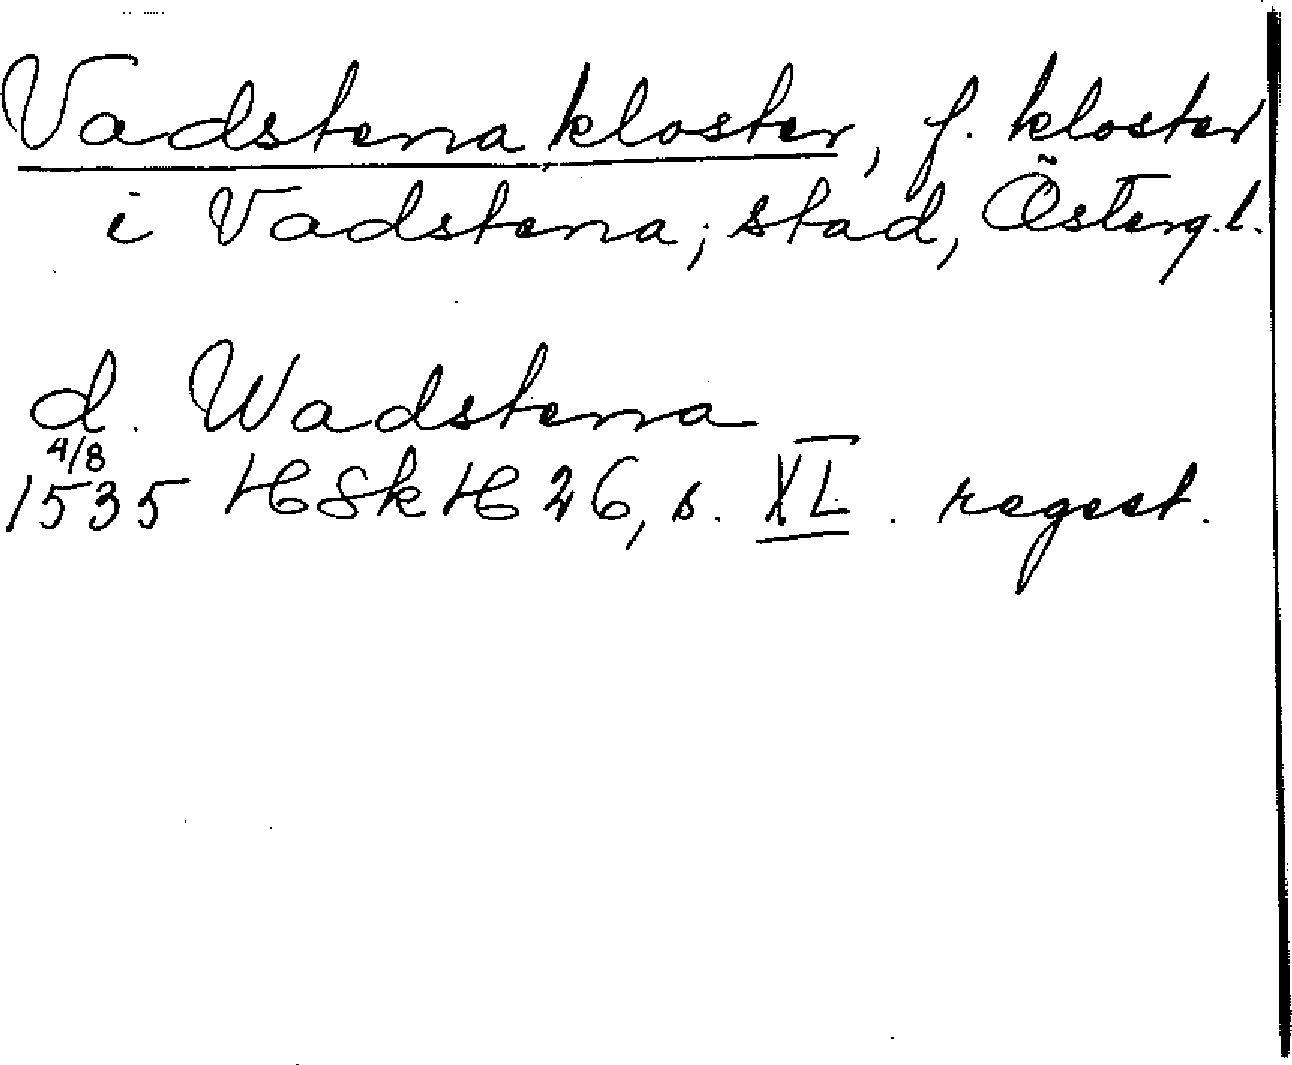 Vadstena kloster, f. kloster
i Vadstena, stad, Österg.l.
d. Wadstena
4/8
1535 HSkH 26, s. XL. regest.